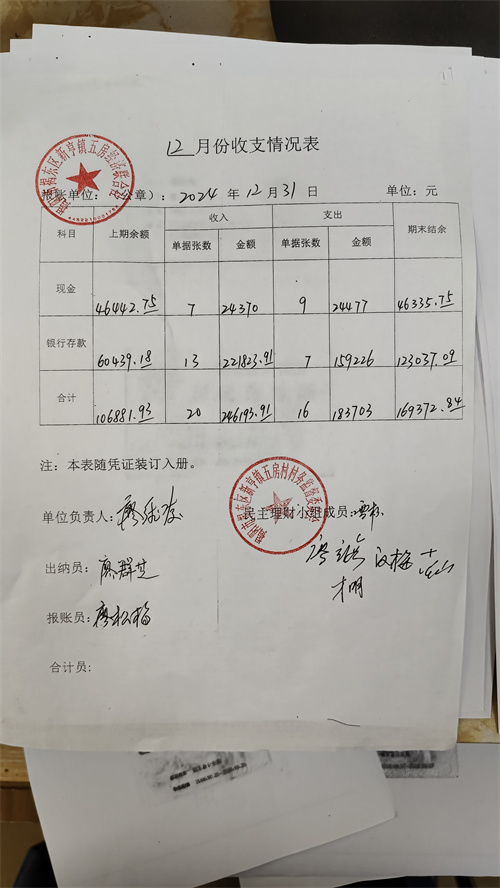 12月份收支情况表
报账单位：（公章）：2024年12月31日 单位：元
科目 上期余额 收入 支出 期末结余
单据张数 金额 单据张数 金额
现金 46442.75 7 24370 9 24477 46335.75
银行存款 60439.18 13 221823.91 7 159226 123037.09
合计 106881.93 20 246193.91 16 183703 169372.84
注：本表随凭证装订入册。
单位负责人：廖
民主理财小组成员：
出纳员：廖群芝
报账员：廖松梅
合计员:
揭阳市揭东区新亨镇五房村村务监督委员会